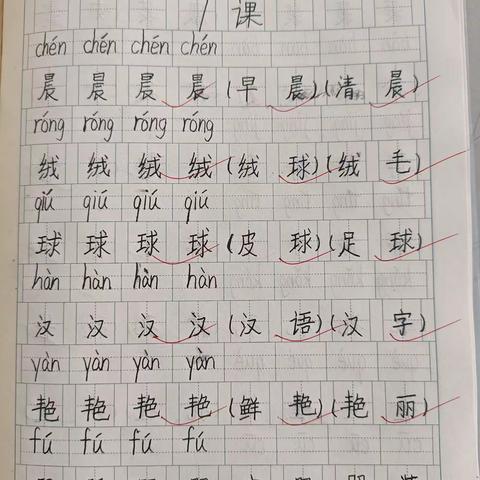 1 课
chén chén chén chén
晨 晨 晨 晨 (早 晨)(清 晨)
róng róng róng róng
绒 绒 绒 绒 (绒 球)(绒 毛)
qiú qiú qiú qiú
球 球 球 球 (皮 球)(足 球)
hàn hàn hàn hàn
汉 汉 汉 汉 (汉 语)(汉 字)
yàn yàn yàn yàn
艳 艳 艳 艳 (鲜 艳)(艳 丽)
fú fú fú fú